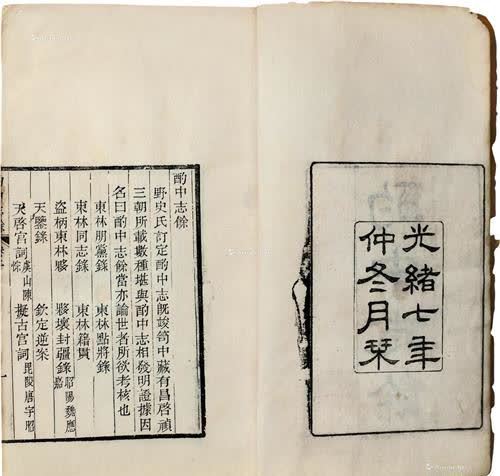 光緒七年
仲冬月栞
酌中志餘
野史氏訂定酌中志旣竣笥中藏有昌啓禎
三朝所載數種堪與酌中志相發明證據因
名曰酌中志餘當亦論世者所欲考核也
東林朋黨錄
東林點將錄
東林同志錄
東林籍貫
盜柄東林夥
夥壞封疆錄
天鑒錄
欽定逆案
天啓宮詞
虞山陳
擬古宮詞
毘陵唐宇昭